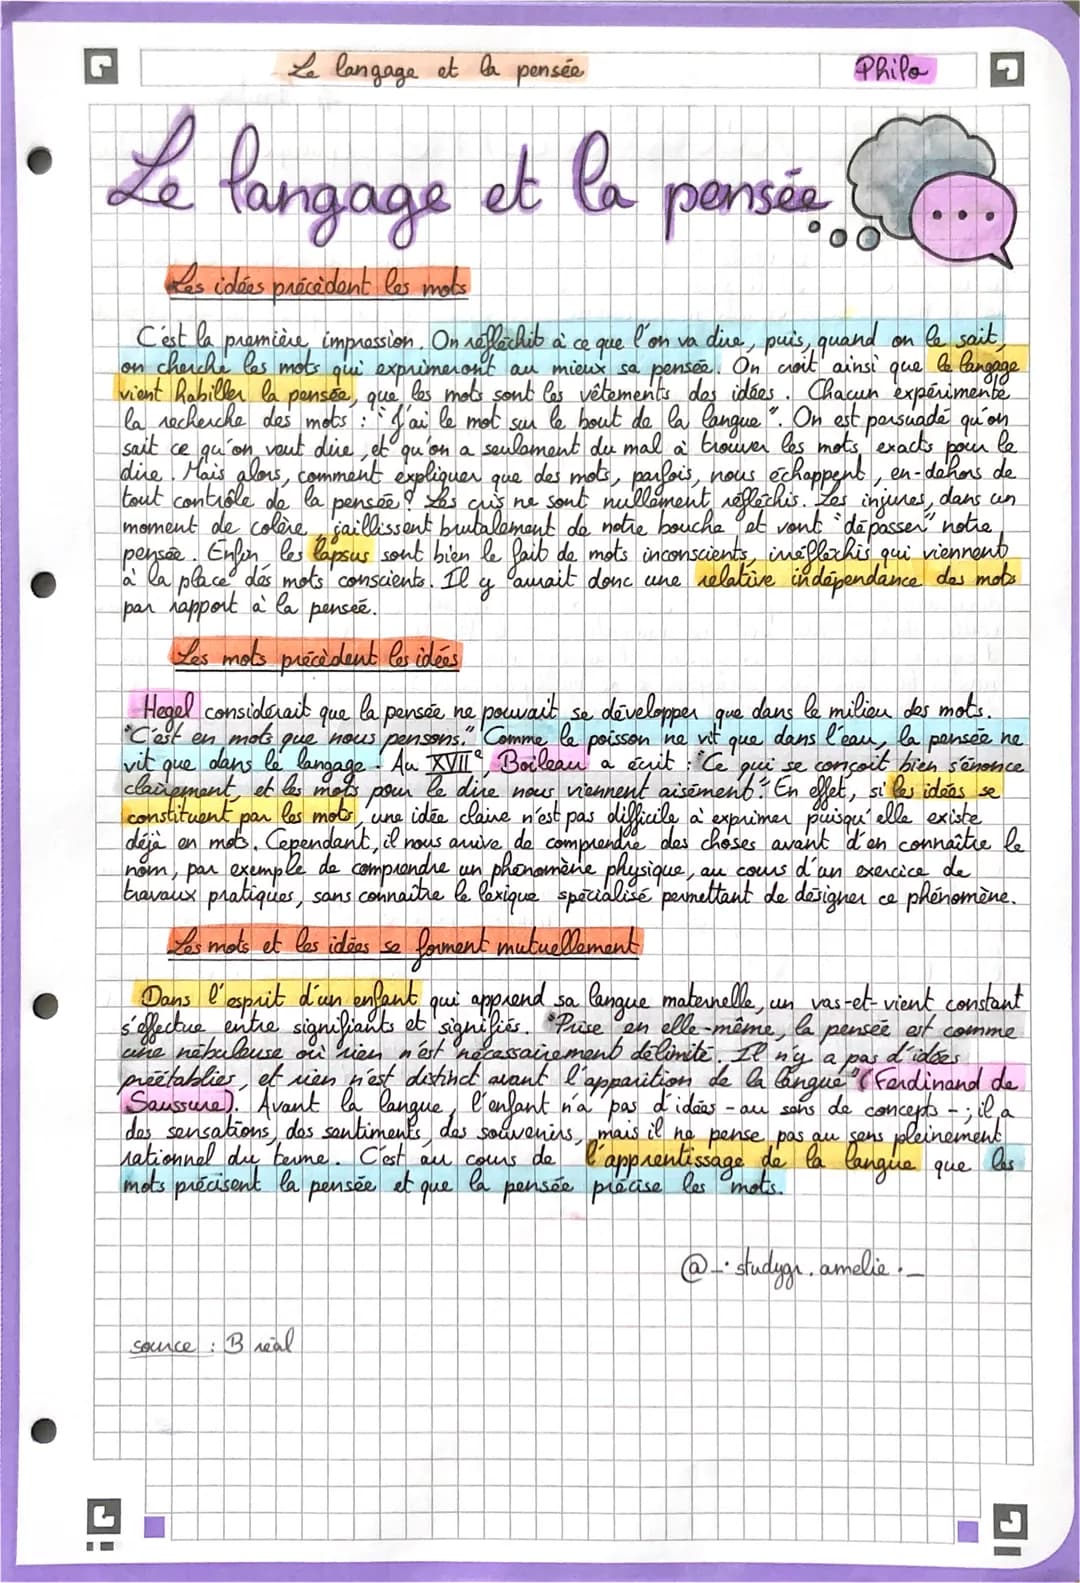 Le langage et la pensée
Philo
Le langage et la pensée
Les idées précèdent les mots
C'est la première impression. On réfléchit à ce que l'on va dire, puis, quand on le sait,
on cherche les mots qui exprimeront au mieux sa pensée. On croit ainsi que le langage
vient habiller la pensée, que les mots sont les vêtements des idées. Chacun expérimente
la recherche des mots : "J'ai le mot sur le bout de la langue". On est persuadé qu'on
sait ce qu'on veut dire, et qu'on a seulement du mal à trouver les mots exacts pour le
dire. Mais alors, comment expliquer que des mots, parfois, nous échappent, en-dehors de
tout contrôle de la pensée ? Les cris ne sont nullement réfléchis. Les injures, dans un
moment de colère, jaillissent brutalement de notre bouche et vont "dépasser" notre
pensée. Enfin, les lapsus sont bien le fait de mots inconscients, irréfléchis qui viennent
à la place des mots conscients. Il y aurait donc une relative indépendance des mots
par rapport à la pensée.
Les mots précèdent les idées
Hegel considérait que la pensée ne pouvait se développer que dans le milieu des mots.
"C'est en mots que nous pensons." Comme le poisson ne vit que dans l'eau, la pensée ne
vit que dans le langage. Au XVIIe, Boileau a écrit : "Ce qui se conçoit bien s'énonce
clairement, et les mots pour le dire nous viennent aisément". En effet, si les idées se
constituent par les mots, une idée claire n'est pas difficile à exprimer puisqu'elle existe
déjà en mots. Cependant, il nous arrive de comprendre des choses avant d'en connaître le
nom, par exemple de comprendre un phénomène physique, au cours d'un exercice de
travaux pratiques, sans connaître le lexique spécialisé permettant de désigner ce phénomène.
Les mots et les idées se forment mutuellement
Dans l'esprit d'un enfant qui apprend sa langue maternelle, un vas-et-vient constant
s'effectue entre signifiants et signifiés. "Prise en elle-même, la pensée est comme
une nébuleuse où rien n'est nécessairement délimité. Il n'y a pas d'idées
préétablies, et rien n'est distinct avant l'apparition de la langue" (Ferdinand de
Saussure). Avant la langue, l'enfant n'a pas d'idées - au sens de concepts - ; il a
des sensations, des sentiments, des souvenirs, mais il ne pense pas au sens pleinement
rationnel du terme. C'est au cours de l'apprentissage de la langue que les
mots précisent la pensée et que la pensée précise les mots.
@_.studygr.amelie._
source : B réal